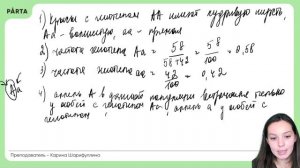 PARTA
1) Крысы с генотипом АА имеют кудрявую шерсть,
Аа - волнистую, аа - прямая
2) частота генотипа Аа = 58/(58+42) = 58/100 = 0,58
3) частота генотипа аа = 42/100 = 0,42
4) аллель А в данной популяции встречается только
у особей с генотипом Аа, аллель а у особей с
генотипом
Преподаватель - Карина Шарифуллина